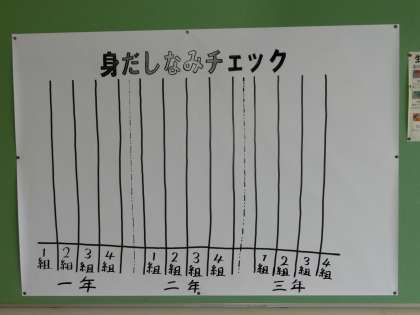 身だしなみチェック
1組 2組 3組 4組 1組 2組 3組 4組 1組 2組 3組 4組
一年 二年 三年